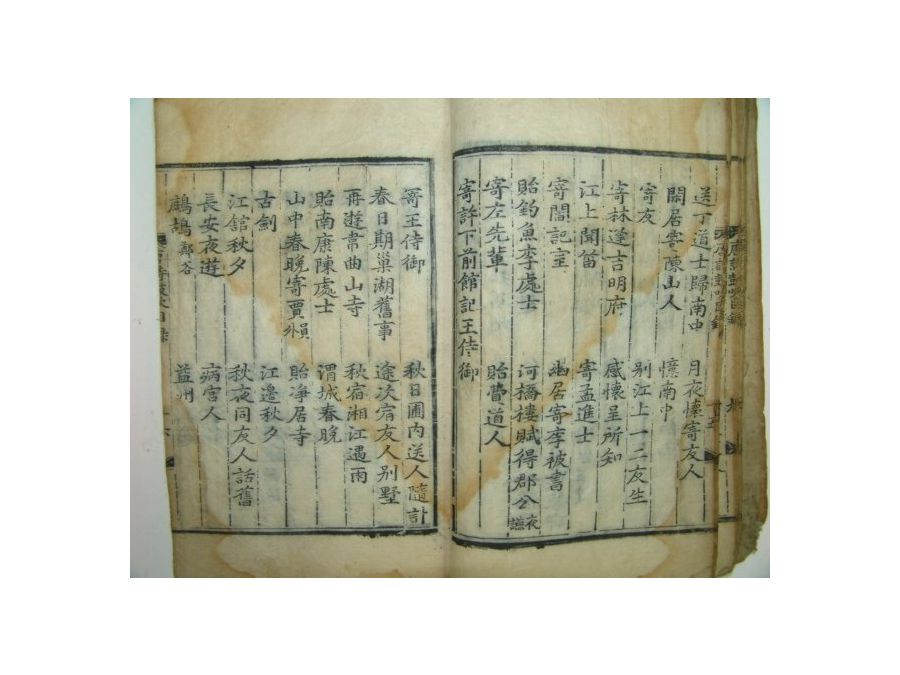 送丁道士歸南中　月夜懷寄友人
閑居寄陳山人　憶南中
寄友　別江上一二友生
寄林蓬吉明府　感懷呈所知
江上聞笛　寄孟進士
寄閻記室　幽居寄李秘書
貽釣魚李處士　河橋樓賦得郡公夜讌
寄左先輩　貽費道人
寄許下前館記王侍御
寄王侍御　秋日圃內送人隨計
春日期巢湖舊事　途次宿友人別墅
再遊韋曲山寺　秋宿湘江遇雨
貽南康陳處士　渭城春晚
山中春晚寄賈員外　貽淨居寺
古劍　江邊秋夕
江館秋夕　秋夜同友人話舊
長安夜遊　病宮人
鷓鴣 鄭谷　益州